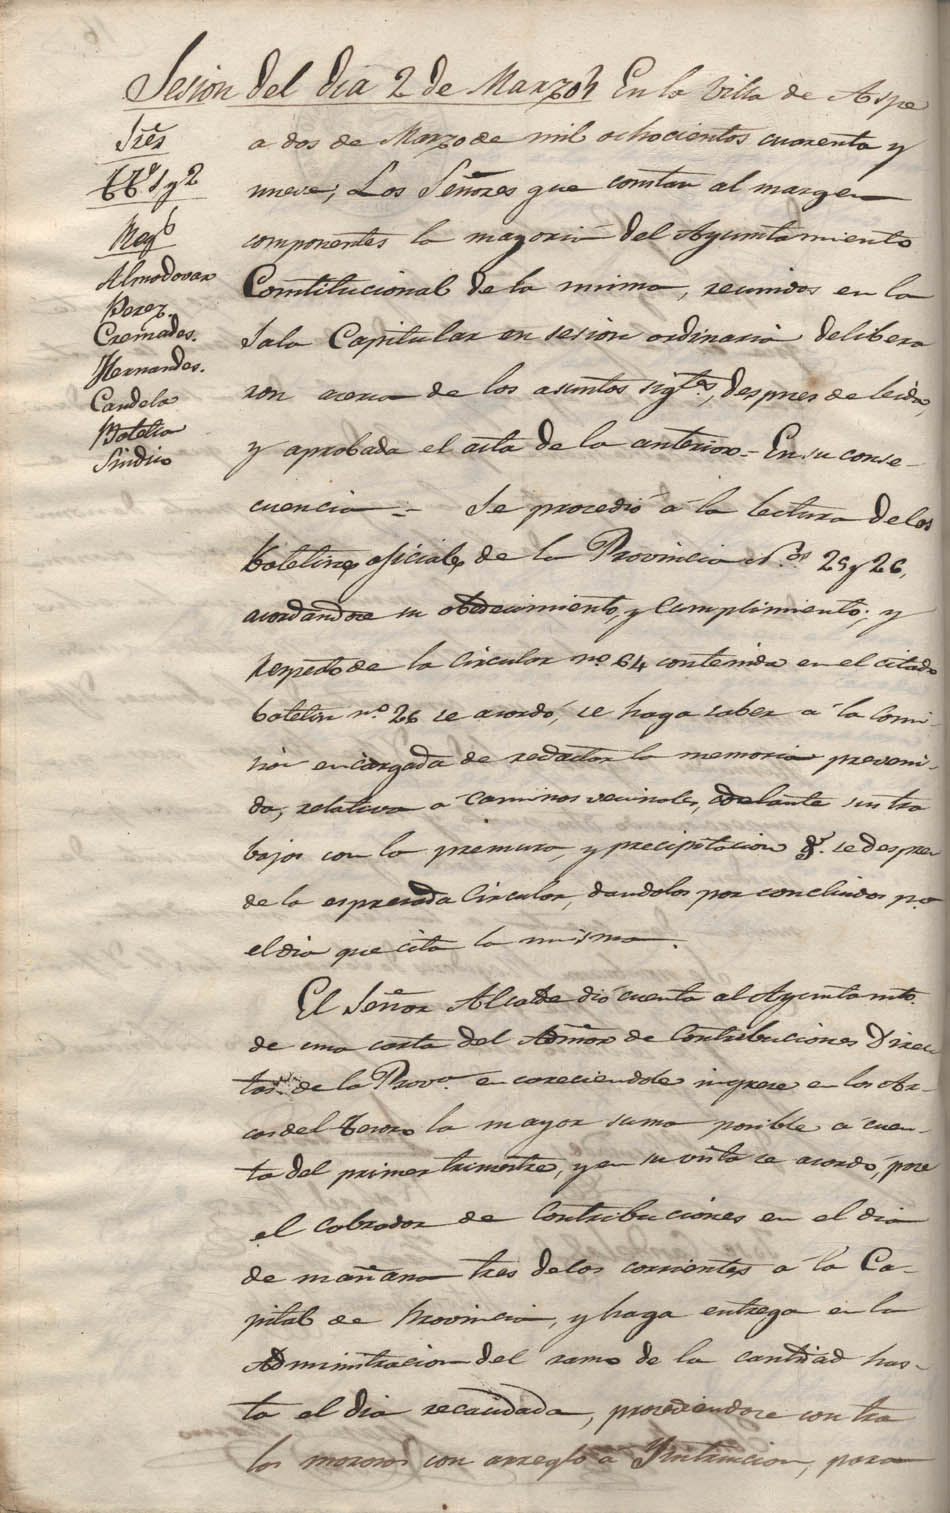 Sesion del dia 2 de Marzo En la Villa de Aspe
a dos de Marzo de mil ochocientos cuarenta y
nueve; Los Señores que constan al margen
componentes la mayoria del Ayuntamiento
Constitucional de la misma, reunidos en la
Sala Capitular en sesion ordinaria delibera
ron acerca de los asuntos sigtes, despues de leida,
y aprobada el acta de la anterior = En su conse-
cuencia = Se procedió á la lectura de los
boletines oficiales de la Provincia Nos 25 y 26,
acordandose su obedecimiento, y cumplimiento; y
respecto de la circular no 64 contenida en el citado
boletin no 26 se acordó, se haga saber a la comi-
sion encargada de redactar la memoria preveni-
da, relativa a caminos vecinales, adelante sus tra
bajos con la premura, y precipitacion qe se despren
de la espresada Circular, dandolos por concluidos pa
el dia que cita la misma.
El Señor Alcalde dió cuenta al Ayuntamto
de una carta del Admor de Contribuciones Direc
tas de la Prova encareciendole ingrese en las Ar-
cas del Tesoro la mayor suma posible a cuen-
ta del primer trimestre, y en su vista se acordó, pase
el cobrador de Contribuciones en el dia
de mañana tres de los corrientes a la Ca-
pital de Provincia, y haga entrega en la
Administracion del ramo de la cantidad has-
ta el dia recaudada, procediendose contra
los morosos con arreglo a Ynstruccion, para
Sres
1 y 2
Regs
Almodovar
Perez.
Cremades.
Hernandes.
Candela
Botella
Sindico